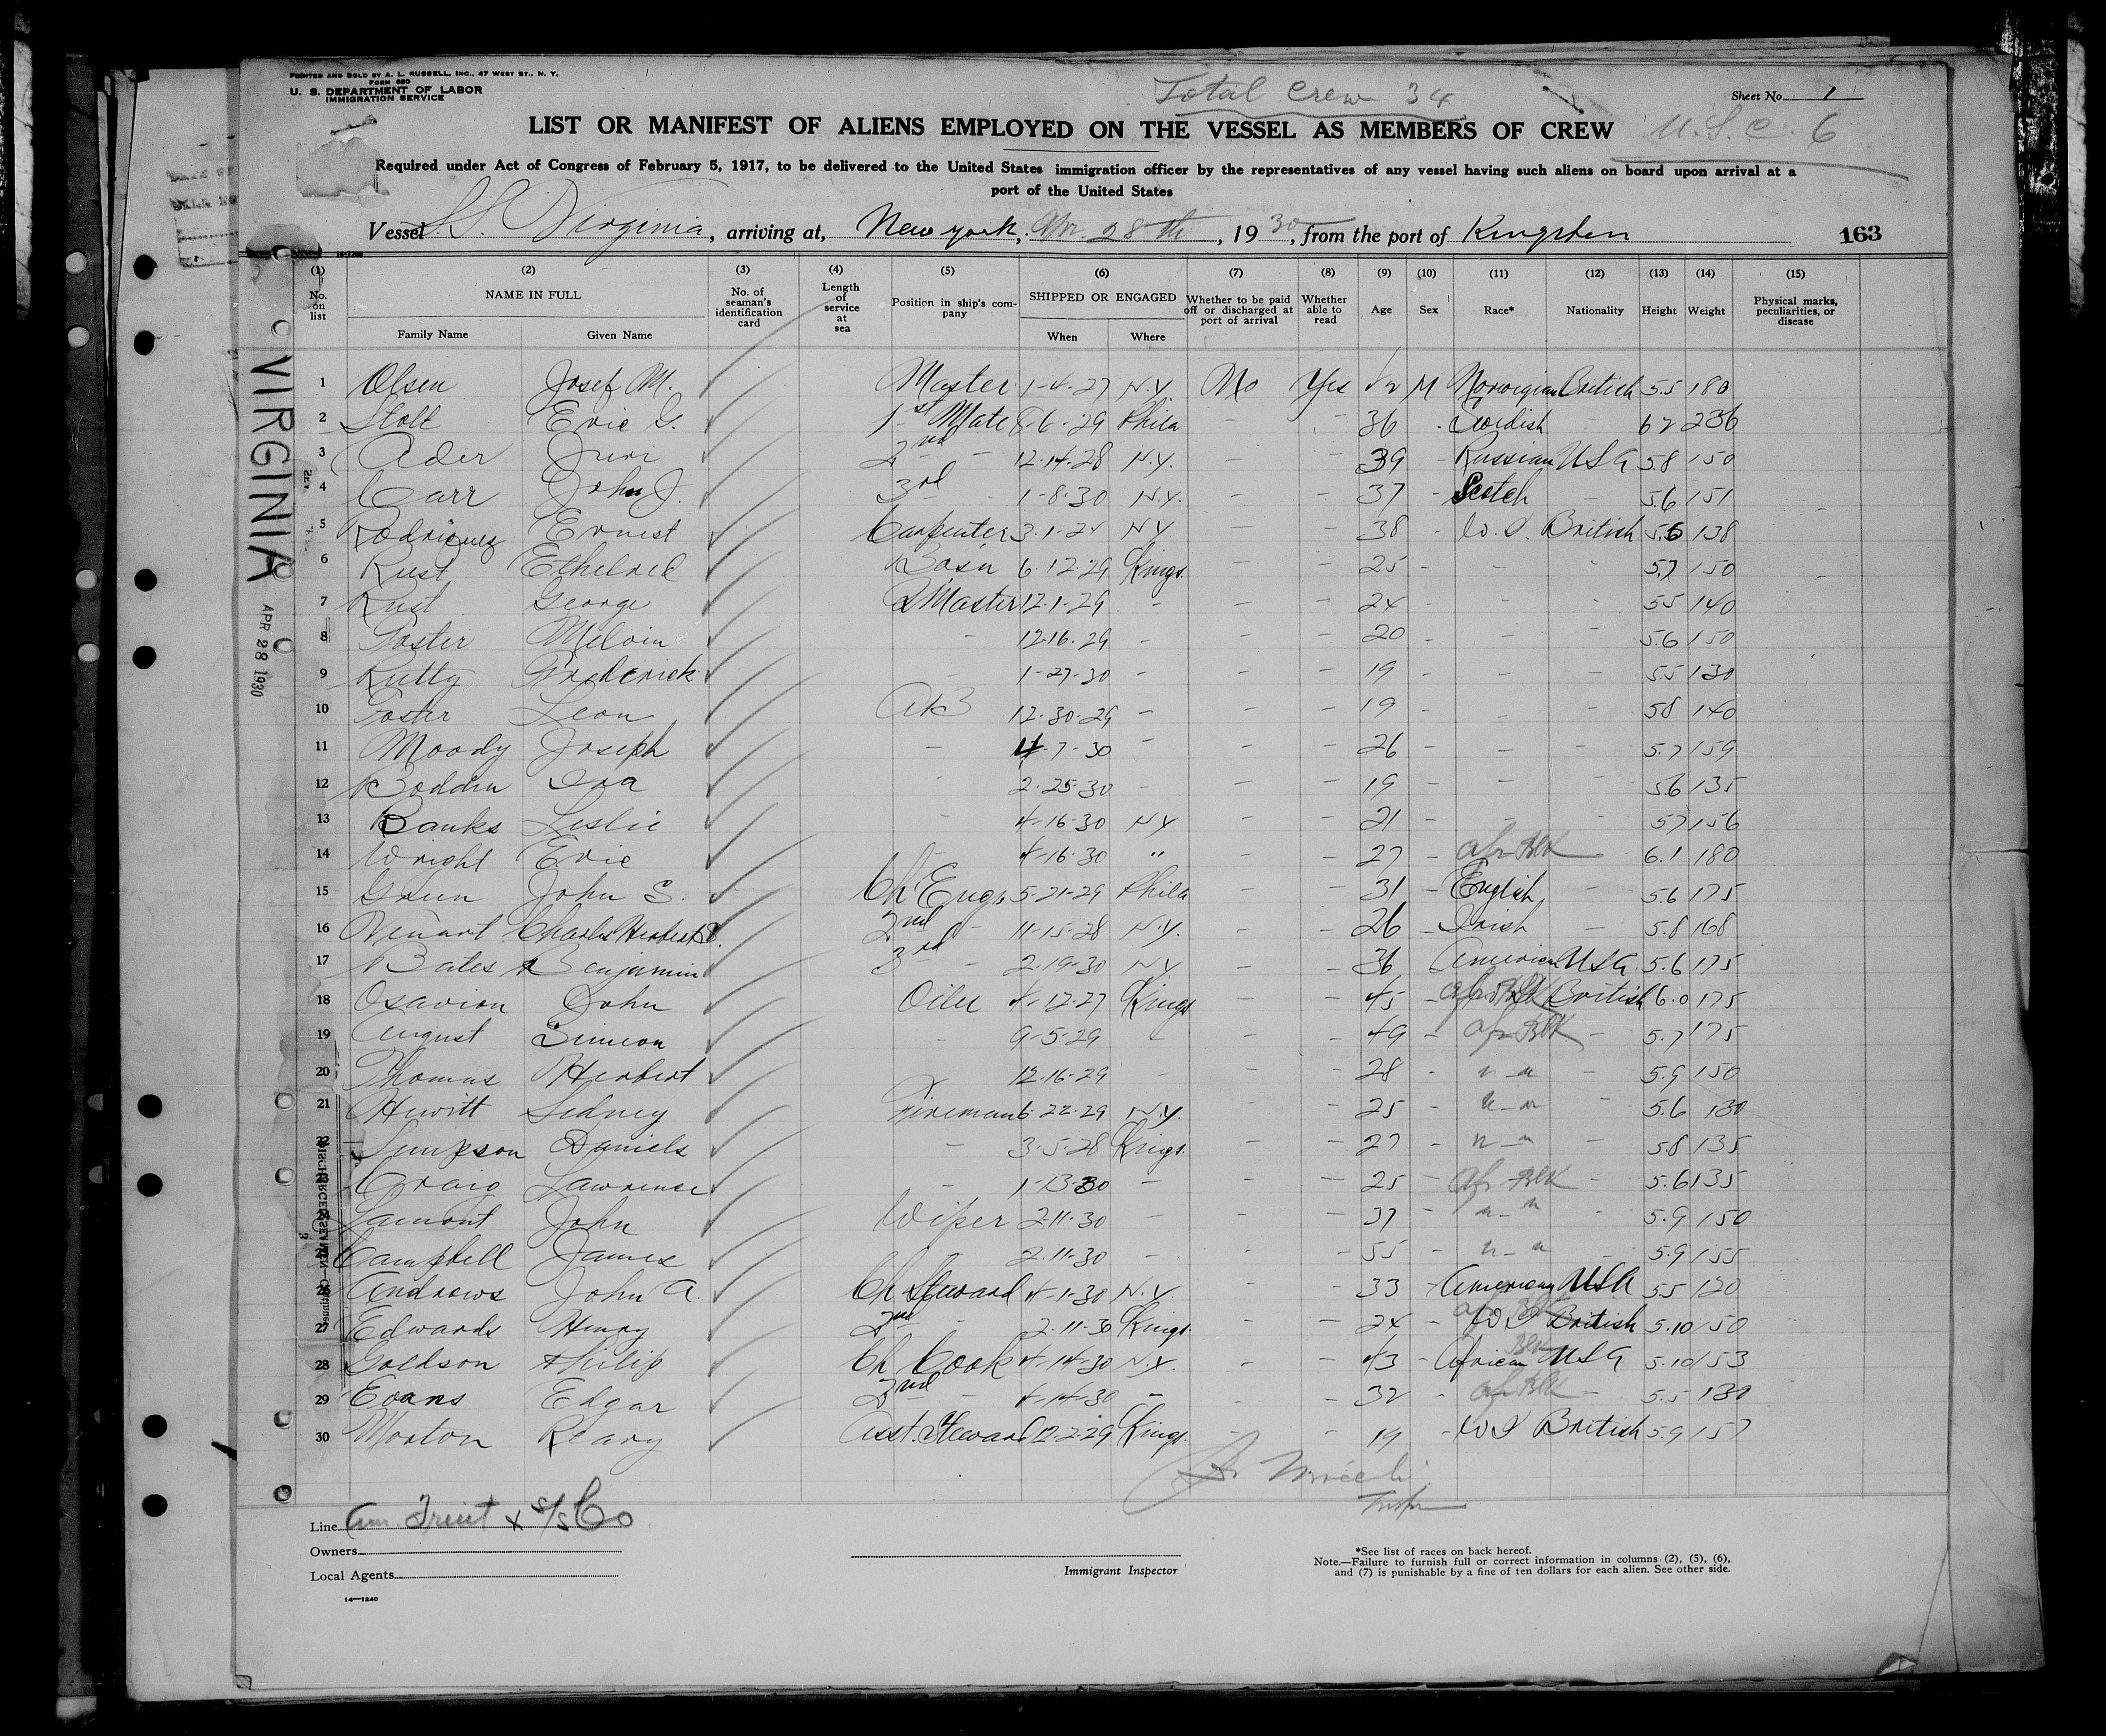 PRINTED AND SOLD BY A. L. RUSSELL, INC., 47 WEST ST., N. Y.
FORM 680
U. S. DEPARTMENT OF LABOR
IMMIGRATION SERVICE
Total Crew 34
Sheet No. 1
LIST OR MANIFEST OF ALIENS EMPLOYED ON THE VESSEL AS MEMBERS OF CREW
U.S.C. 6
Required under Act of Congress of February 5, 1917, to be delivered to the United States immigration officer by the representatives of any vessel having such aliens on board upon arrival at a
port of the United States
Vessel S.S. Virginia, arriving at, New york, Apr. 28th, 1930, from the port of Kingston 163
(1) (2) (3) (4) (5) (6) (7) (8) (9) (10) (11) (12) (13) (14) (15)
No. on list NAME IN FULL Family Name Given Name No. of seaman's identification card Length of service at sea Position in ship's company SHIPPED OR ENGAGED When Where Whether to be paid off or discharged at port of arrival Whether able to read Age Sex Race* Nationality Height Weight Physical marks, peculiarities, or disease
1 Olsen Josef M. Master 1-4-27 N.Y. No Yes M Norwegian British 5.5 180
2 Stott Eric G. 1st Mate 8-6-29 Phila - - 36 - Swedish 6 2 236
3 Ader Juri 2nd - 12-14-28 N.Y. - - 39 - Russian USA 5.8 150
4 Carr John J. 3rd - 1-8-30 N.Y. - - 37 - Scotch - 5.6 151
5 Rodriquez Ernest Carpenter 3-1-24 NY - - 38 - W.I. British 5.6 138
6 Rust Ethelred Bosn 6-12-29 Kings. - - 25 - - - 5.7 150
7 Rust George QMaster 12-1-29 - - - 24 - - - 5 5 140
8 Foster Melvin - 12-16-29 - - - 20 - - - 5.6 150
9 Rutty Frederick - 1-27-30 - - - 19 - - - 5.5 130
10 Foster Leon AB 12-30-29 - - - 19 - - - 5 8 140
11 Moody Joseph - 4-7-30 - - - 26 - - - 5.7 159
12 Bodden Ira - 2-25-30 - - - 19 - - - 5.6 135
13 Banks Leslie - 4-16-30 NY - - 21 - - - 5 7 156
14 Wright Eric - 4-16-30 " - - 27 - Afr Blk - 6.1 180
15 Green John S. Ch Engr 5-21-29 Phila - - 31 - English - 5.6 175
16 Charles Herbert 2nd - 11-15-28 N.Y. - - 26 - Irish - 5.8 168
17 Bates Benjamin 3rd - 2-19-30 NY - - 36 American USA 5.6 175
18 Osavion John Oiler 4-12-27 Kings - - 45 - Afr Blk British 6.0 175
19 August Simeon - 9-5-29 - - - 49 - Afr Blk - 5.7 175
20 Thomas Herbert 12-16-29 - - - 28 - " - " - 5.9 150
21 Hewitt Sidney Fireman 6-22-29 N.Y. - - 25 - " - " - 5.6 130
22 Simpson Daniels - 3-5-28 Kings. - - 27 - " - " - 5.8 135
Craig Lawrence - 1-13-30 - - - 25 - Afr Blk - 5.6 135
24 Lamont John Wiper 2-11-30 - - - 37 - " - " - 5.9 150
Campbell James 2-11-30 - - - 55 - " - " - 5.9 155
26 Andrews John A. Ch Steward 4-1-30 N.Y. - - 33 - American USA 5.5 120
27 Edwards Henry 2nd - 2-11-30 Kings. - - 24 - Afr Blk W I British 5.10 150
28 Goldson Philip Ch Cook 4-14-30 N.Y. - - 43 - African Blk USA 5.10 153
29 Evans Edgar 2nd - 4-14-30 - - - 32 - Afr Blk - 5.5 130
30 Morton Reary Asst. Steward 12-2-29 Kings. - - 19 - W I British 5.9 157
VIRGINIA
APR 28 1930
Line Am. Fruit & S/S Co
Owners
Local Agents
Immigrant Inspector
*See list of races on back hereof.
Note.—Failure to furnish full or correct information in columns (2), (5), (6),
and (7) is punishable by a fine of ten dollars for each alien. See other side.
14—1240